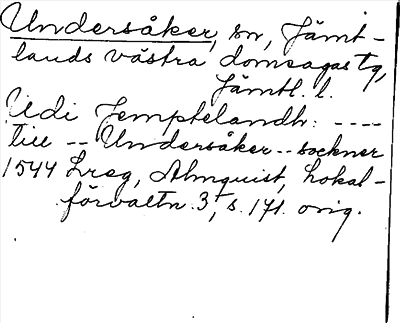 Undersåker, sn, Jämt-
lands västra domsagas tg,
Jämtl. l.
Udi Jemptelandh: ----
till -- Undersåker -- sockner
1544 Lreg, Almquist, Lokal-
förvaltn. 3, s. 171. orig.